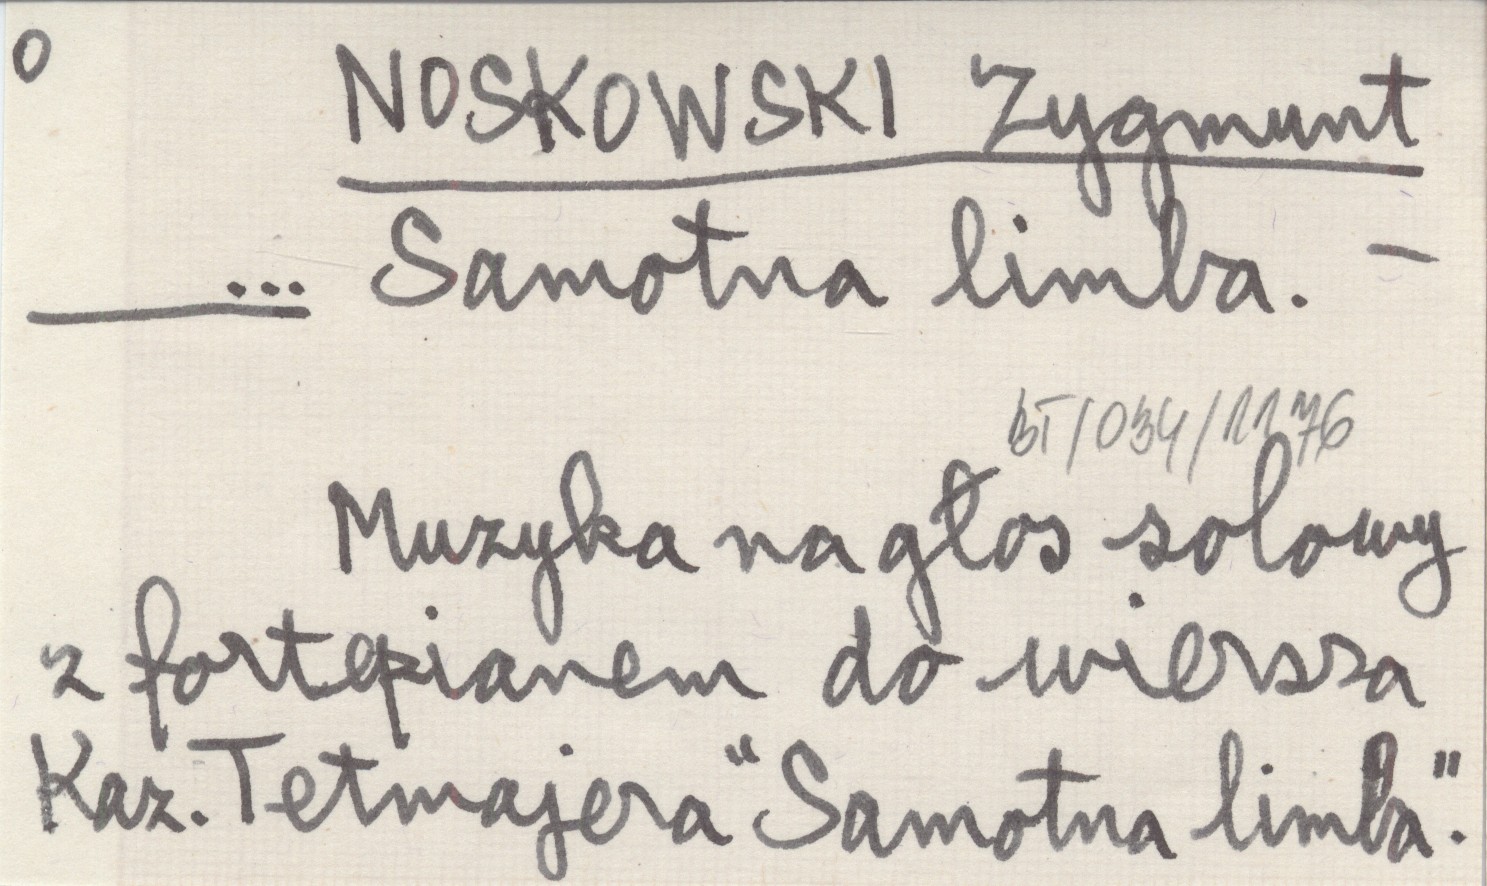 0
NOSKOWSKI Zygmunt
... Samotna limba. -
BT/034/1176
Muzyka na głos solowy
z fortepianem do wiersza
Kaz. Tetmajera "Samotna limba".